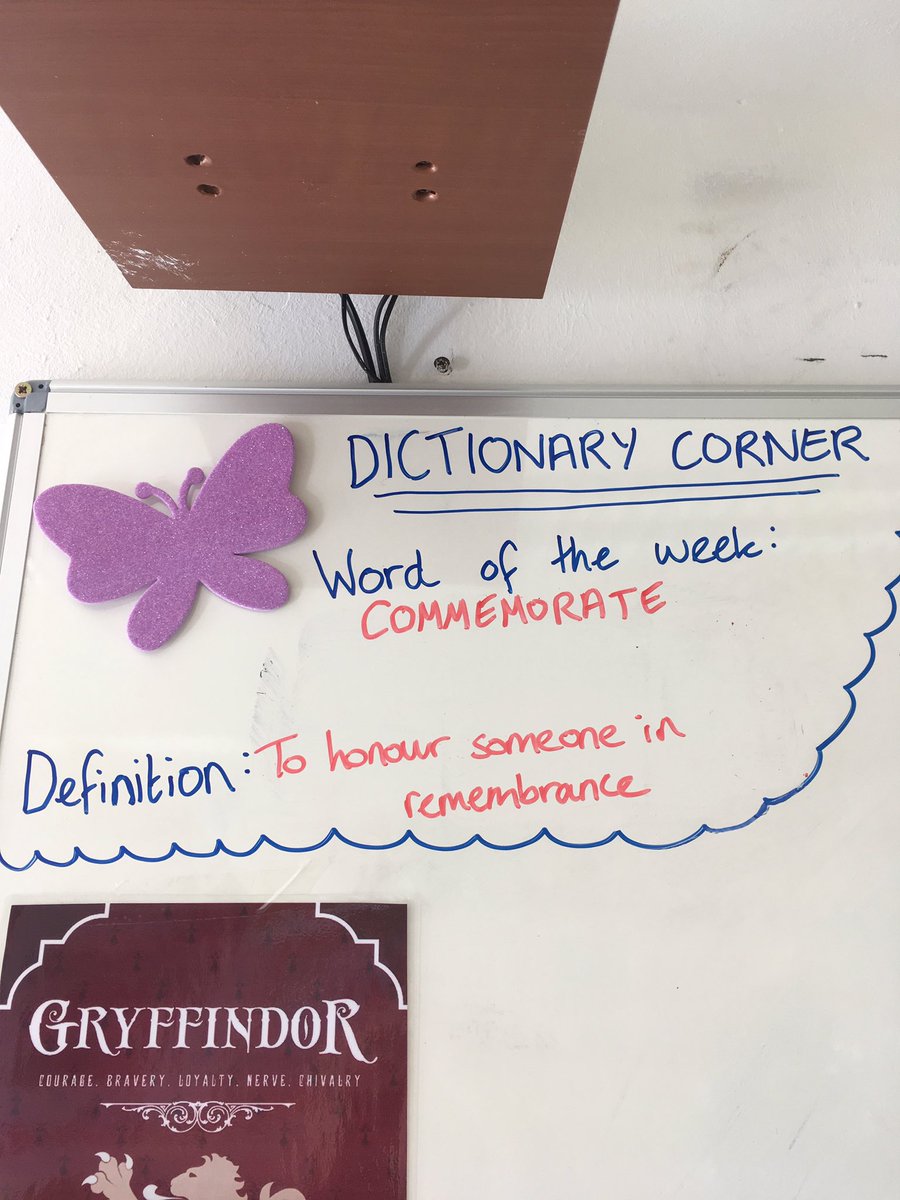 DICTIONARY CORNER
Word of the week:
COMMEMORATE
Definition: To honour someone in
remembrance
GRYFFINDOR
COURAGE. BRAVERY. LOYALTY. NERVE. CHIVALRY